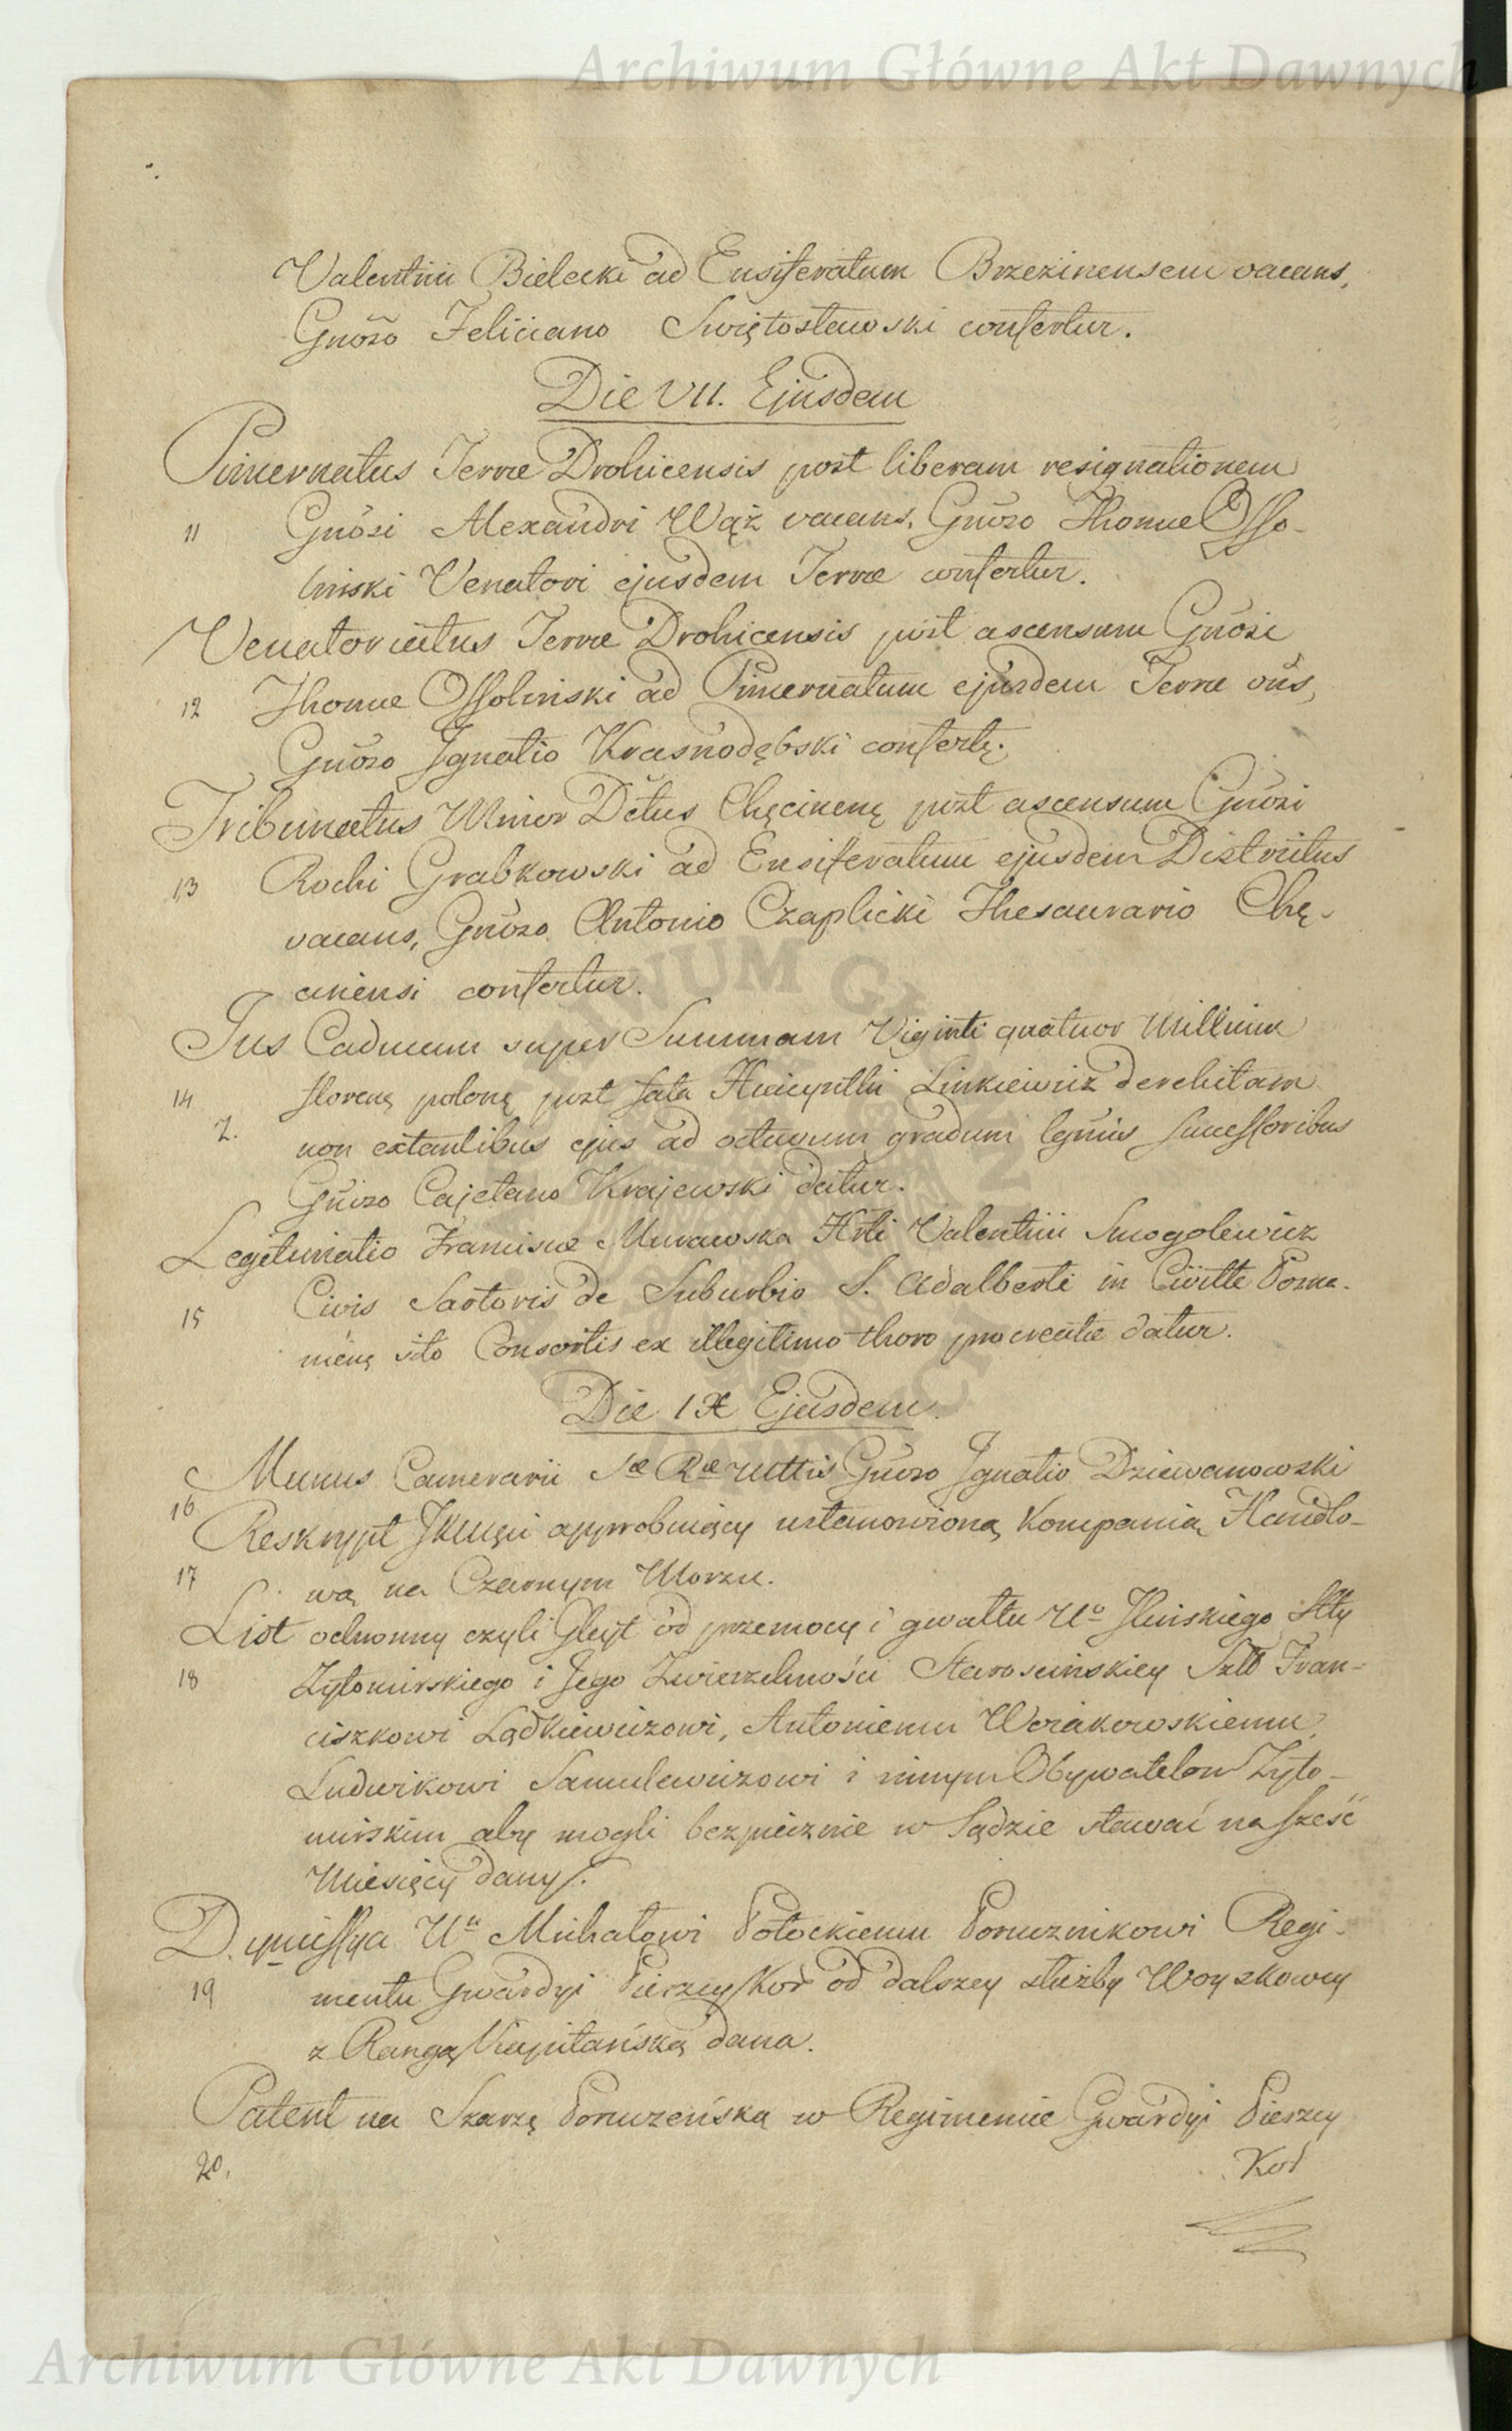 Archiwum Główne Akt Dawnych
Valentini Bielecki ad Ensiferatum Brzezinensem vacans,
Gnoso Feliciano Swiętosławski confertur.
Die VII. Ejusdem
Pincernatus Terræ Drohicensis post liberam resignationem
11 Gnosi Alexandri Wąż vacans, Gnoso Thomæ Osso-
linski Venatori ejusdem Terræ confertur.
Venatoriatus Terræ Drohicensis post ascensum Gnosi
12 Thomæ Ossolinski ad Pincernatum ejusdem Terræ vns,
Gnoso Ignatio Krasnodębski confertę.
Tribunatus Minor Dctus Chęcinenę post ascensum Gnosi
13 Rochi Grabkowski ad Ensiferatum ejusdem Districtus
vacans, Gnoso Antonio Czaplicki Thesaurario Chę-
cinensi confertur.
Jus Caducum super Summam Viginti quatuor Millium
14 florenę polonę post fata Hiacynthi Linkiewicz derelictam
2. non extantibus ejus ad octavum gradum lgmis successoribus
Gnoso Cajetano Krajewski datur.
Legitimatio Franciscæ Murawska Hrti Valentini Smogolewicz
15 Civis Sartoris de Suburbio S. Adalberti in Civitte Pozna-
nienę sito Consortis ex illegitimo thoro procreatæ datur.
Die IX Ejusdem.
Munus Camerarii Sæ Ræ Mttis Gnoso Ignatio Dziewanowski
16
Reskrypt JKMęci approbuiący ustanowioną Kompanią Handlo-
17 wą na Czarnym Morzu.
List ochronny czyli Gleyt od przemocy i gwałtu Uo Ilinskiego Stty
18 Zytomirskiego i Jego Zwierzchności Staroscińskiey Szltt Fran-
ciszkowi Lądkiewiczowi, Antoniemu Worakowskiemu,
Ludwikowi Samulewiczowi i innym Obywatelom Zyto-
mirskim aby mogli bezpiecznie w Sądzie stawać na sześć
Miesięcy dany.
Dymissya Uu Michałowi Potockiemu Porucznikowi Regi-
19 mentu Gwardyi Pieszey Kor od dalszey służby Woyskowey
z Rangą Kapitańską dana.
Patent na Szarzę Poruczeńską w Regimencie Gwardyi Pieszey
20. Kor
Archiwum Główne Akt Dawnych